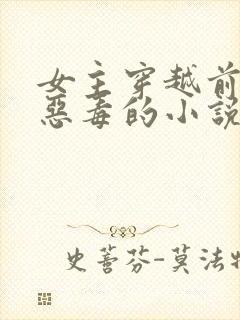 女主穿越前
惡毒的小說
史蒈芬-莫法特